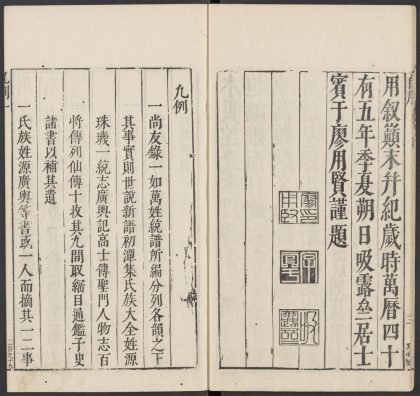 用叙巔末幷紀歲時萬曆四十
有五年季夏朔日吸露居士
賓于廖用賢謹題
凡例
一尚友錄一如萬姓統譜所編分列各韻之下
其事實則世說新語初潭集氏族大全姓源
珠璣一統志廣輿記高士傳聖門人物志百
將傳列仙傳十收其九間取綱目通鑑子史
諸書以補其遺
一氏族姓源廣輿等書或一人而摘其一二事
凡例一